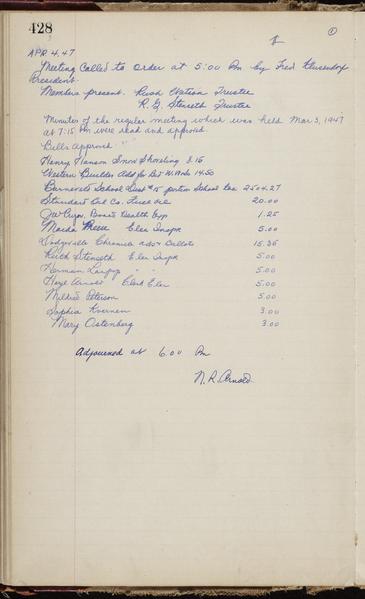 428
1
APR 4.47
Meeting Called to order at 5:00 Pm by Fred
President
Members present. Rush Watson Trustee
R. G. Stenseth Trustee
Minutes of the regular meeting which was held Mar 3, 1947
at 7:15 Pm were read and approved.
Bills Approved
Henry Hanson Snow Shoveling 2.16
Western Builder Add for Bid W. Works 14.50
Barneveld School Dist #15 portion School tax 2504.27
Standard Oil Co. Fuel oil 20.00
Board Health Exp 1.25
Maida Reese Elec Inspr 5.00
Dodgeville Chronicle adv + Ballots 15.35
Ruth Stenseth Elec Inspr 5.00
Herman " " 5.00
Hazel Arnold Clerk Elec 5.00
Mildred Peterson 5.00
Sophia Kvernen 3.00
Mary Ostenberg 3.00
Adjourned at 6.00 Pm
N. R. Arnold